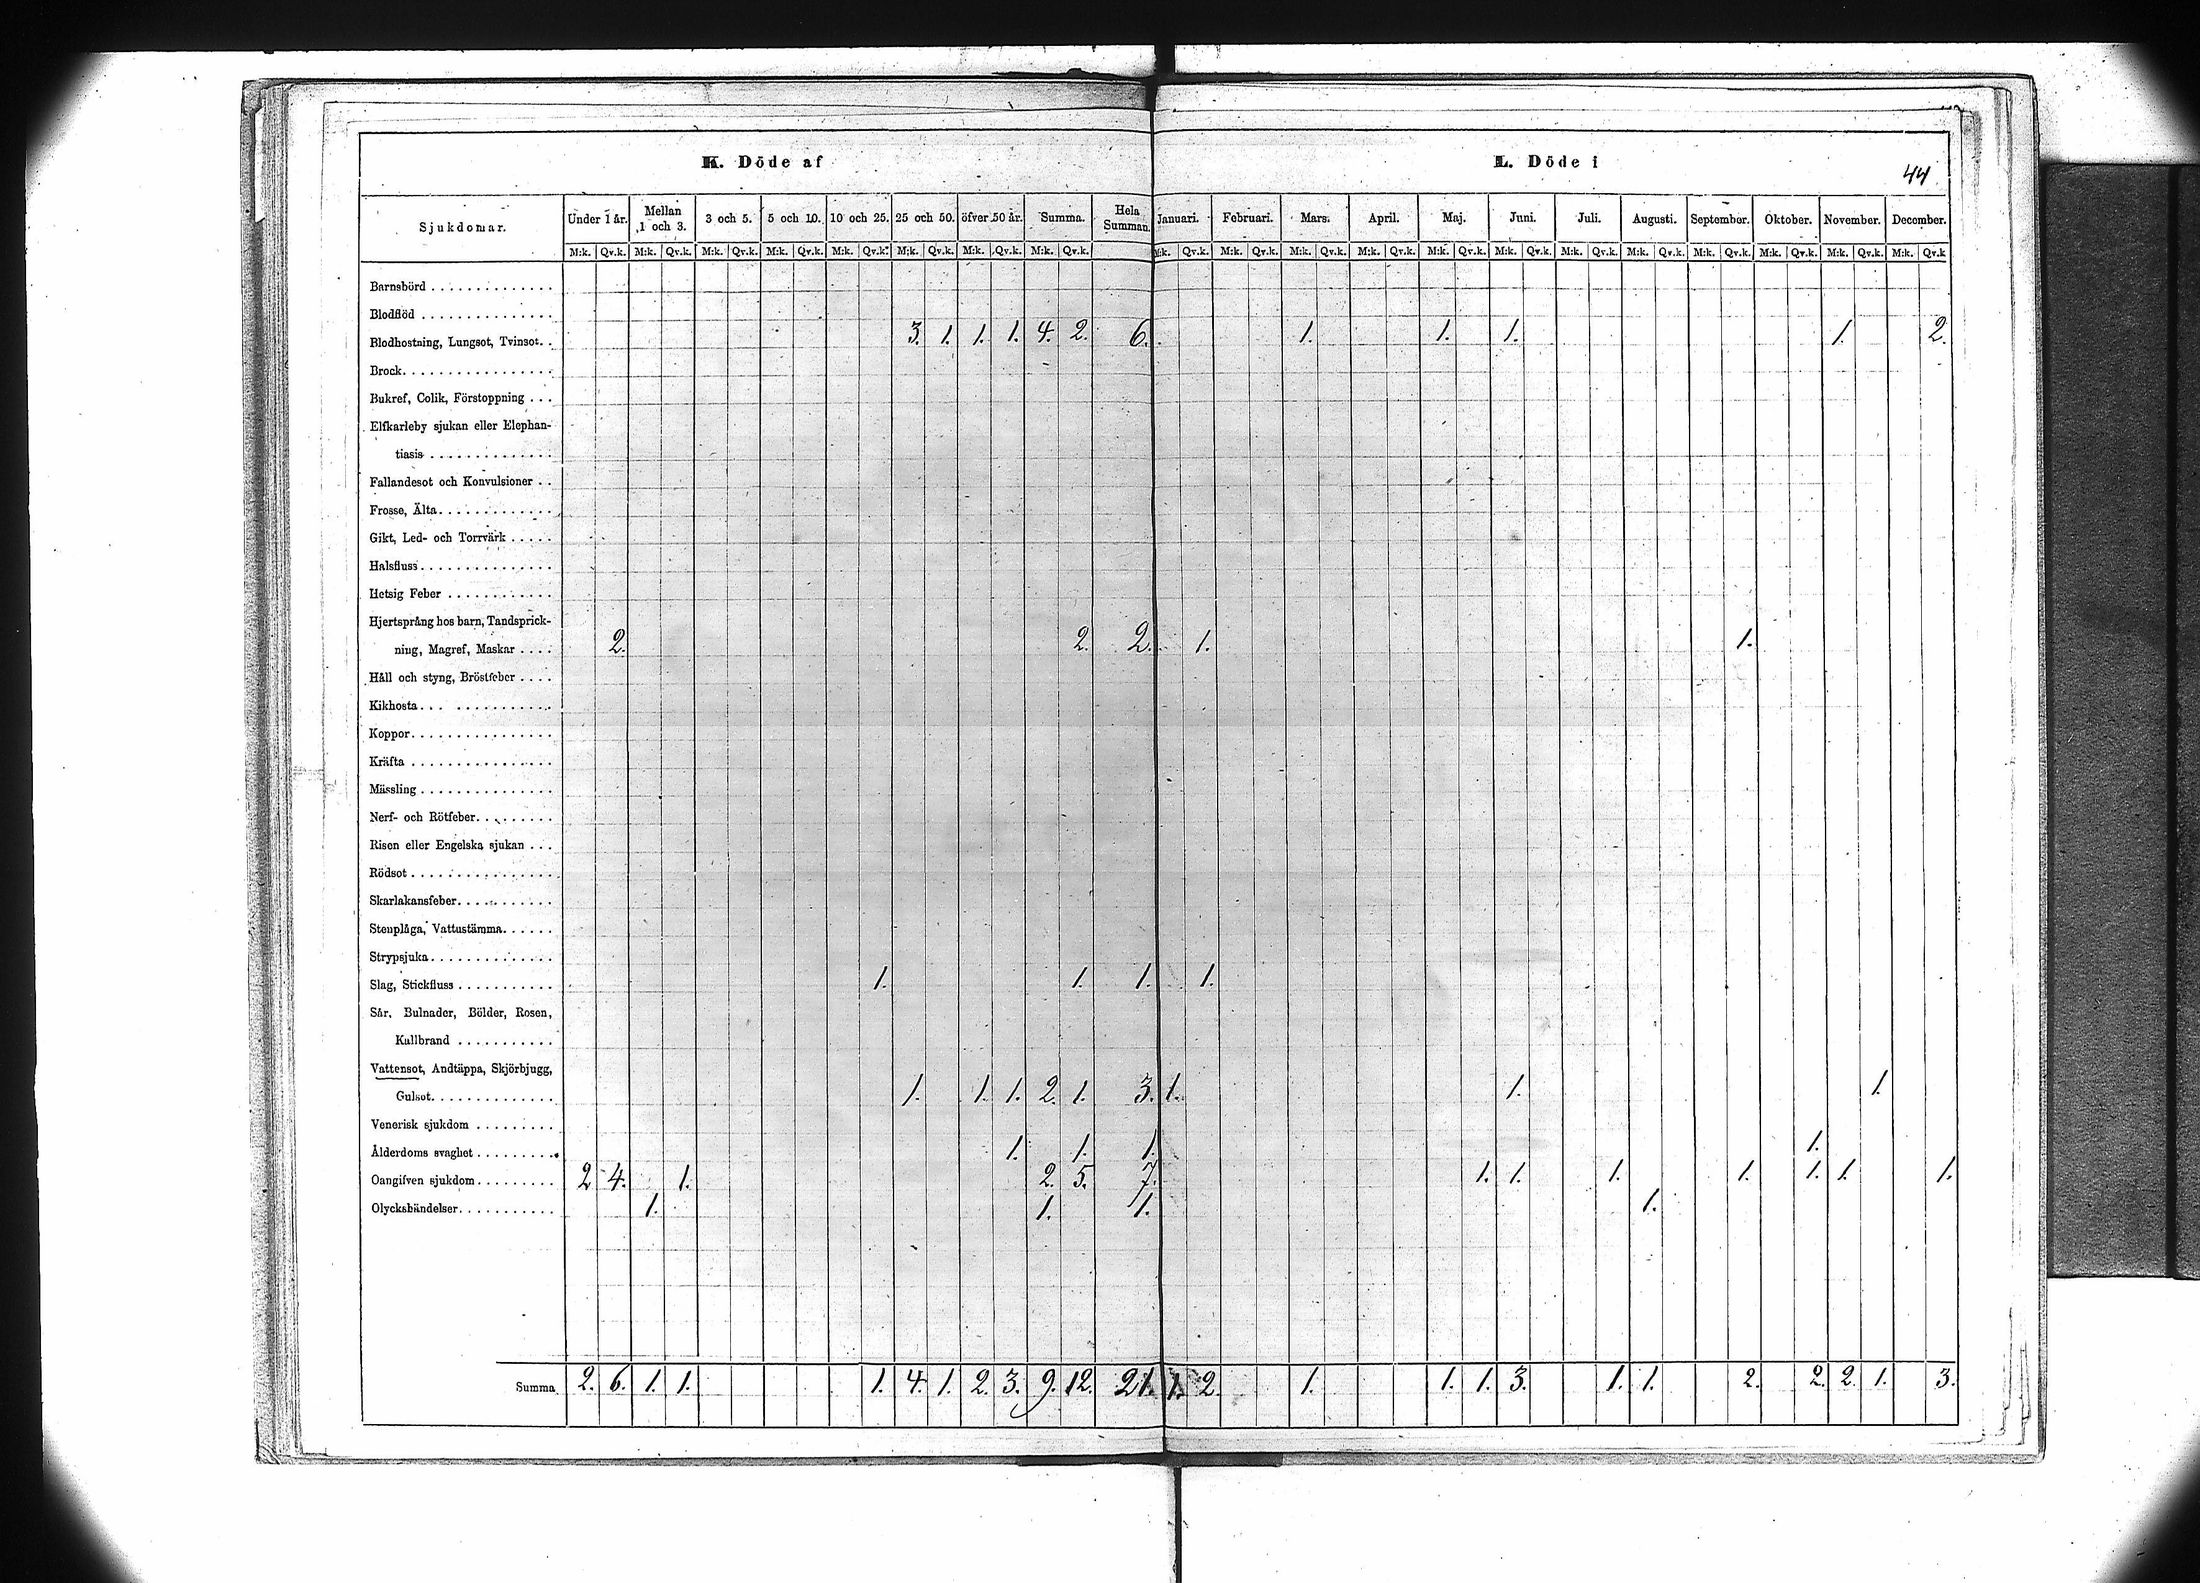 K. Döde af
L. Döde i
44
Sjukdomar. Under 1 år. Mellan 1 och 3. 3 och 5. 5 och 10. 10 och 25. 25 och 50. öfver 50 år. Summa. Hela Summan. Januari. Februari. Mars. April. Maj. Juni. Juli. Augusti. September. Oktober. November. December.
M:k. Qv.k. M:k. Qv.k. M:k. Qv.k. M:k. Qv.k. M:k. Qv.k. M:k. Qv.k. M:k. Qv.k. M:k. Qv.k. M:k. Qv.k. M:k. Qv.k. M:k. Qv.k. M:k. Qv.k. M:k. Qv.k. M:k. Qv.k. M:k. Qv.k. M:k. Qv.k. M:k. Qv.k. M:k. Qv.k. M:k. Qv.k. M:k. Qv.k
Barnsbörd . . . . . . . . . . . . . .
Blodflöd . . . . . . . . . . . . . . .
Blodhostning, Lungsot, Tvinsot. . . 3. 1. 1. 1. 4. 2. 6. 1. 1. 1. 1. 2.
Brock. . . . . . . . . . . . . . . . .
Bukref, Colik, Förstoppning . . .
Elfkarleby sjukan eller Elephan-
tiasis . . . . . . . . . . . . . .
Fallandesot och Konvulsioner . .
Frosse, Älta. . . . . . . . . . . . .
Gikt, Led- och Torrvärk . . . . .
Halsfluss . . . . . . . . . . . . . . .
Hetsig Feber . . . . . . . . . . . .
Hjertsprång hos barn, Tandsprick-
ning, Magref, Maskar . . . . 2. 2. 2. 1. 1.
Håll och styng, Bröstfeber . . . .
Kikhosta. . . . . . . . . . . . . .
Koppor. . . . . . . . . . . . . . . .
Kräfta . . . . . . . . . . . . . . . .
Mässling . . . . . . . . . . . . . . .
Nerf- och Rötfeber. . . . . . . . .
Risen eller Engelska sjukan . . .
Rödsot . . . . . . . . . . . . . . . .
Skarlakansfeber. . . . . . . . . . .
Stenplåga, Vattustämma. . . . . .
Strypsjuka. . . . . . . . . . . . . .
Slag, Stickfluss . . . . . . . . . . . 1. 1. 1. 1.
Sår, Bulnader, Bölder, Rosen,
Kallbrand . . . . . . . . . . .
Vattensot, Andtäppa, Skjörbjugg,
Gulsot. . . . . . . . . . . . . . 1. 1. 1. 2. 1. 3. 1. 1. 1.
Venerisk sjukdom . . . . . . . . .
Ålderdoms svaghet . . . . . . . . . . 1. 1. 1. 1.
Oangifven sjukdom . . . . . . . . . 2 4. 1. 2. 5. 7. 1. 1. 1. 1. 1. 1. 1.
Olyckshändelser. . . . . . . . . . . 1. 1. 1. 1.
Summa 2. 6. 1. 1. 1. 4. 1. 2. 3. 9. 12. 21. 1. 2. 1. 1. 1. 3. 1. 1. 2. 2. 2. 1. 3.